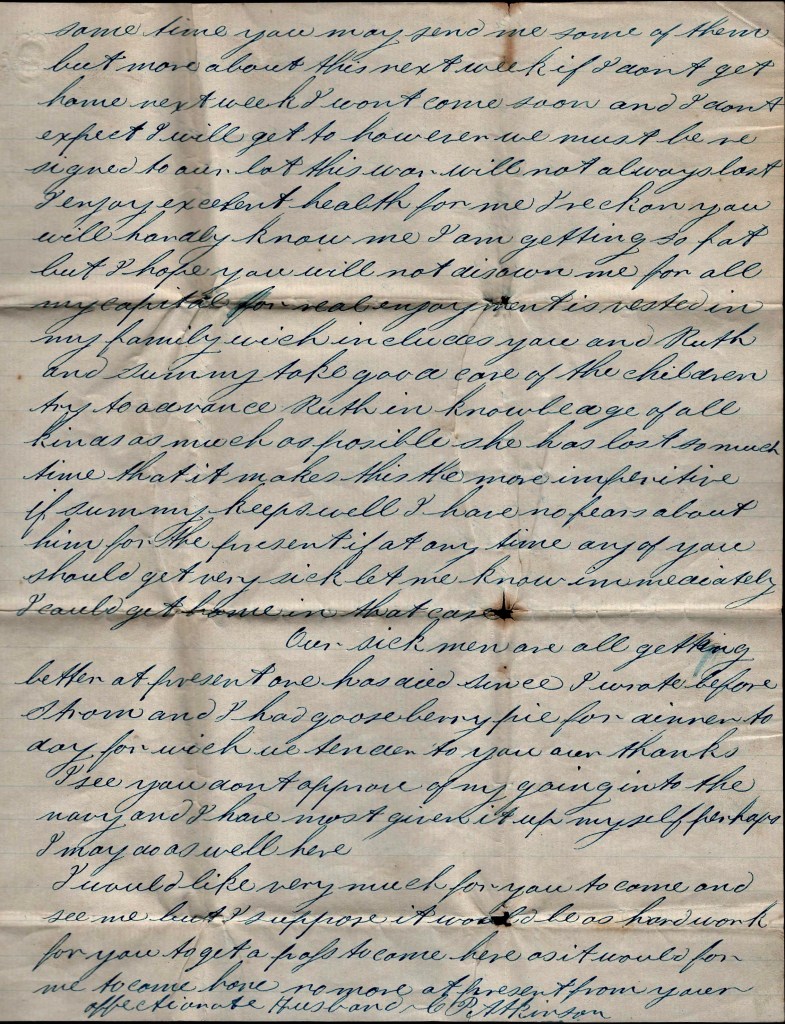 some time you may send me some of them
but more about this next week if I dont get
home next week I wont come soon and I dont
expect I will get to however we must be re
signed to our lot this war will not always last
I enjoy excelent health for me I reckon you
will hardly know me I am getting so fat
but I hope you will not disown me for all
my capital for real enjoyment is vested in
my family wich includes you and Ruth
and Summy take good care of the children
try to advance Ruth in knowledge of all
kinds as much as posible she has lost so much
time that it makes this the more imperitive
if Summy keeps well I have no fears about
him for the present if at any time any of you
should get very sick let me know immediately
I could get home in that case
Our sick men are all getting
better at present one has died since I wrote before
Strom and I had gooseberry pie for dinner to
day for wich we tender to you our thanks
I see you dont approve of my going into the
navy and I have most given it up myself perhaps
I may do as well here
I would like very much for you to come and
see me but I suppose it would be as hard work
for you to get a pass to come here as it would for
me to come home no more at present from your
affectionate Husband C P Atkinson